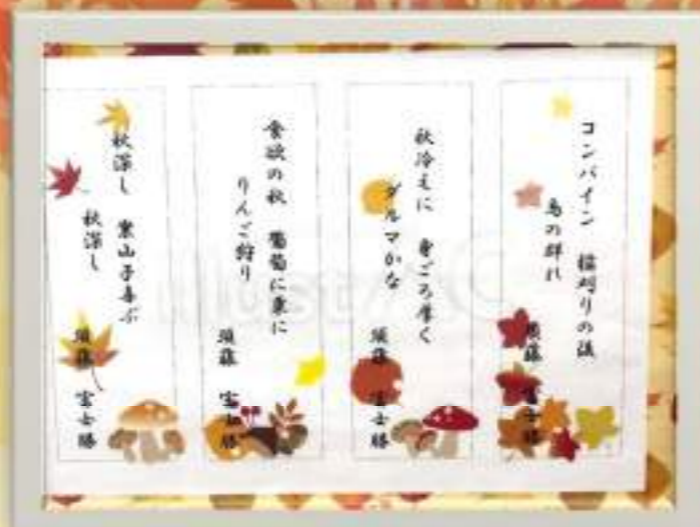 コンバイン 稲刈りの後
鳥の群れ
須藤 富士勝
秋冷えに 身ごろ厚く
ダルマかな
須藤 富士勝
食欲の秋 葡萄に栗に
りんご狩り
須藤 富士勝
秋深し 栗山子喜ぶ
秋深し
須藤 富士勝